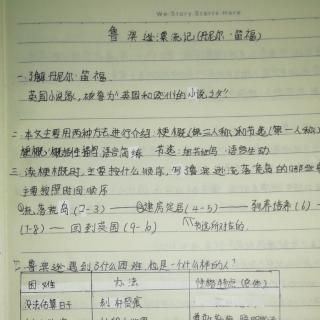 We Story Starts Here
鲁滨逊漂流记(丹尼尔·笛福)
一.了解丹尼尔·笛福
英国小说家,被誉为"英国和欧洲的小说之父"
二.本文主要用两种方式进行介绍:梗概(第三人称)和节选(第一人称)
梗概:概括性描写 语言简练 节选:细节描写 语言生动
三.读梗概时,主要按什么顺序,写鲁滨逊流落荒岛的哪些
主要按照时间顺序
流落荒岛(2-3)——建房定居(4-5)——驯养培养(6)
(7-8)——回到英国(9-10)
三.鲁滨逊遇到了什么困难,他是一个什么样的人?
困难 办法 性格特点
没法估算日子 刻柱受痕